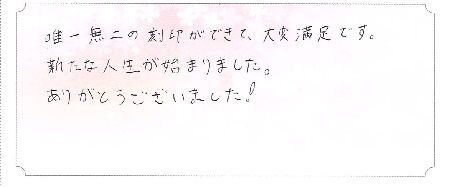 唯一無二の刻印ができて、大変満足です。
新たな人生が始まりました。
ありがとうございました!